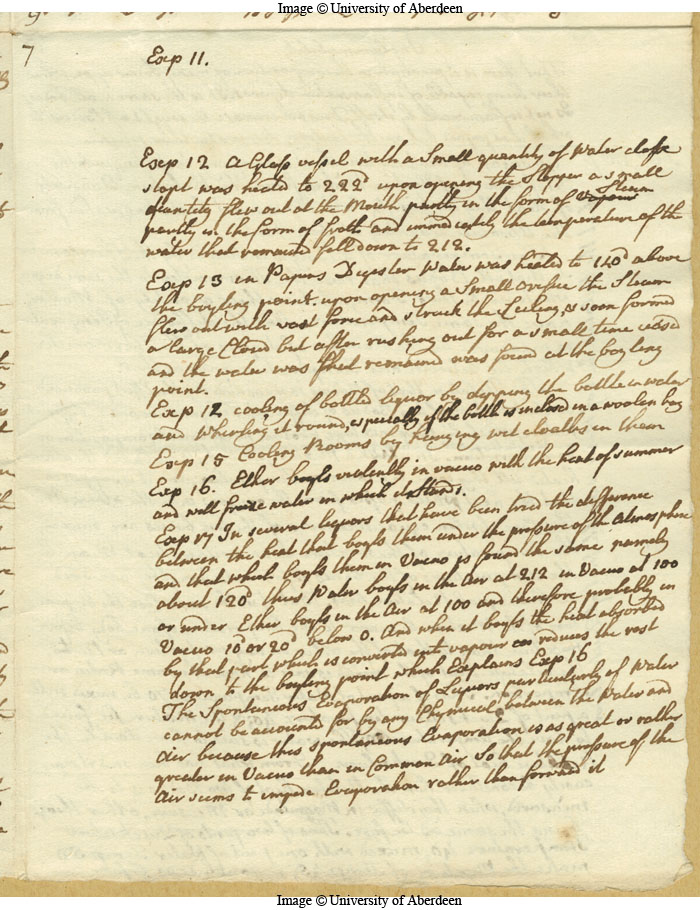 Image © University of Aberdeen
7
Exp 11.
Exp 12 A Glass vessel with a Small quantity of Water close
stopt was heated to 222d upon opening the Stopper a small
quantity flew out at the Mouth partly in the form of vapour Steam
partly in the form of froth and immediately the temperature of the
water that remained fell down to 212.
Exp 13 in Papins Digester Water was heated to 140d above
the boyling point. upon opening a Small orifice the Steam
flew out with vast force and struck the Cieling, & soon formed
a large Cloud but after rushing out for a small time
and the water was that remained was found at the boyling
point.
Exp 12 cooling of bottled liquor by dipping the bottle in water
and Whirling it round, especially if the bottle is inclosed in a woolen bag
Exp 15 Cooling Rooms by hanging wet cloaths in them
Exp 16. Ether boyls violently in vacuo with the heat of summer
and will freeze water in which it Stands.
Exp 17 In several liquors that have been tried the difference
between the heat that boyls them under the pressure of the Atmosphere
and that which boyls them in Vacuo is found the same namely
about 120d thus Water boyls in the air at 212 in Vacuo at 100
or under Ether boyls in the Air at 100 and therefore probably in
Vacuo 10d or 20d below 0. And when it boyls the heat absorbed
by that part which is converted into vapour reduces the rest
down to the boyling point which Explains Exp 16
The Spontaneous Evaporation of Liquors particularly of Water
cannot be accounted for by any Chymical between the Water and
Air because this spontaneous Evaporation is as great or rather
greater in Vacuo than in Common Air So that the pressure of the
Air seems to impede Evaporation rather than forward it
Image © University of Aberdeen